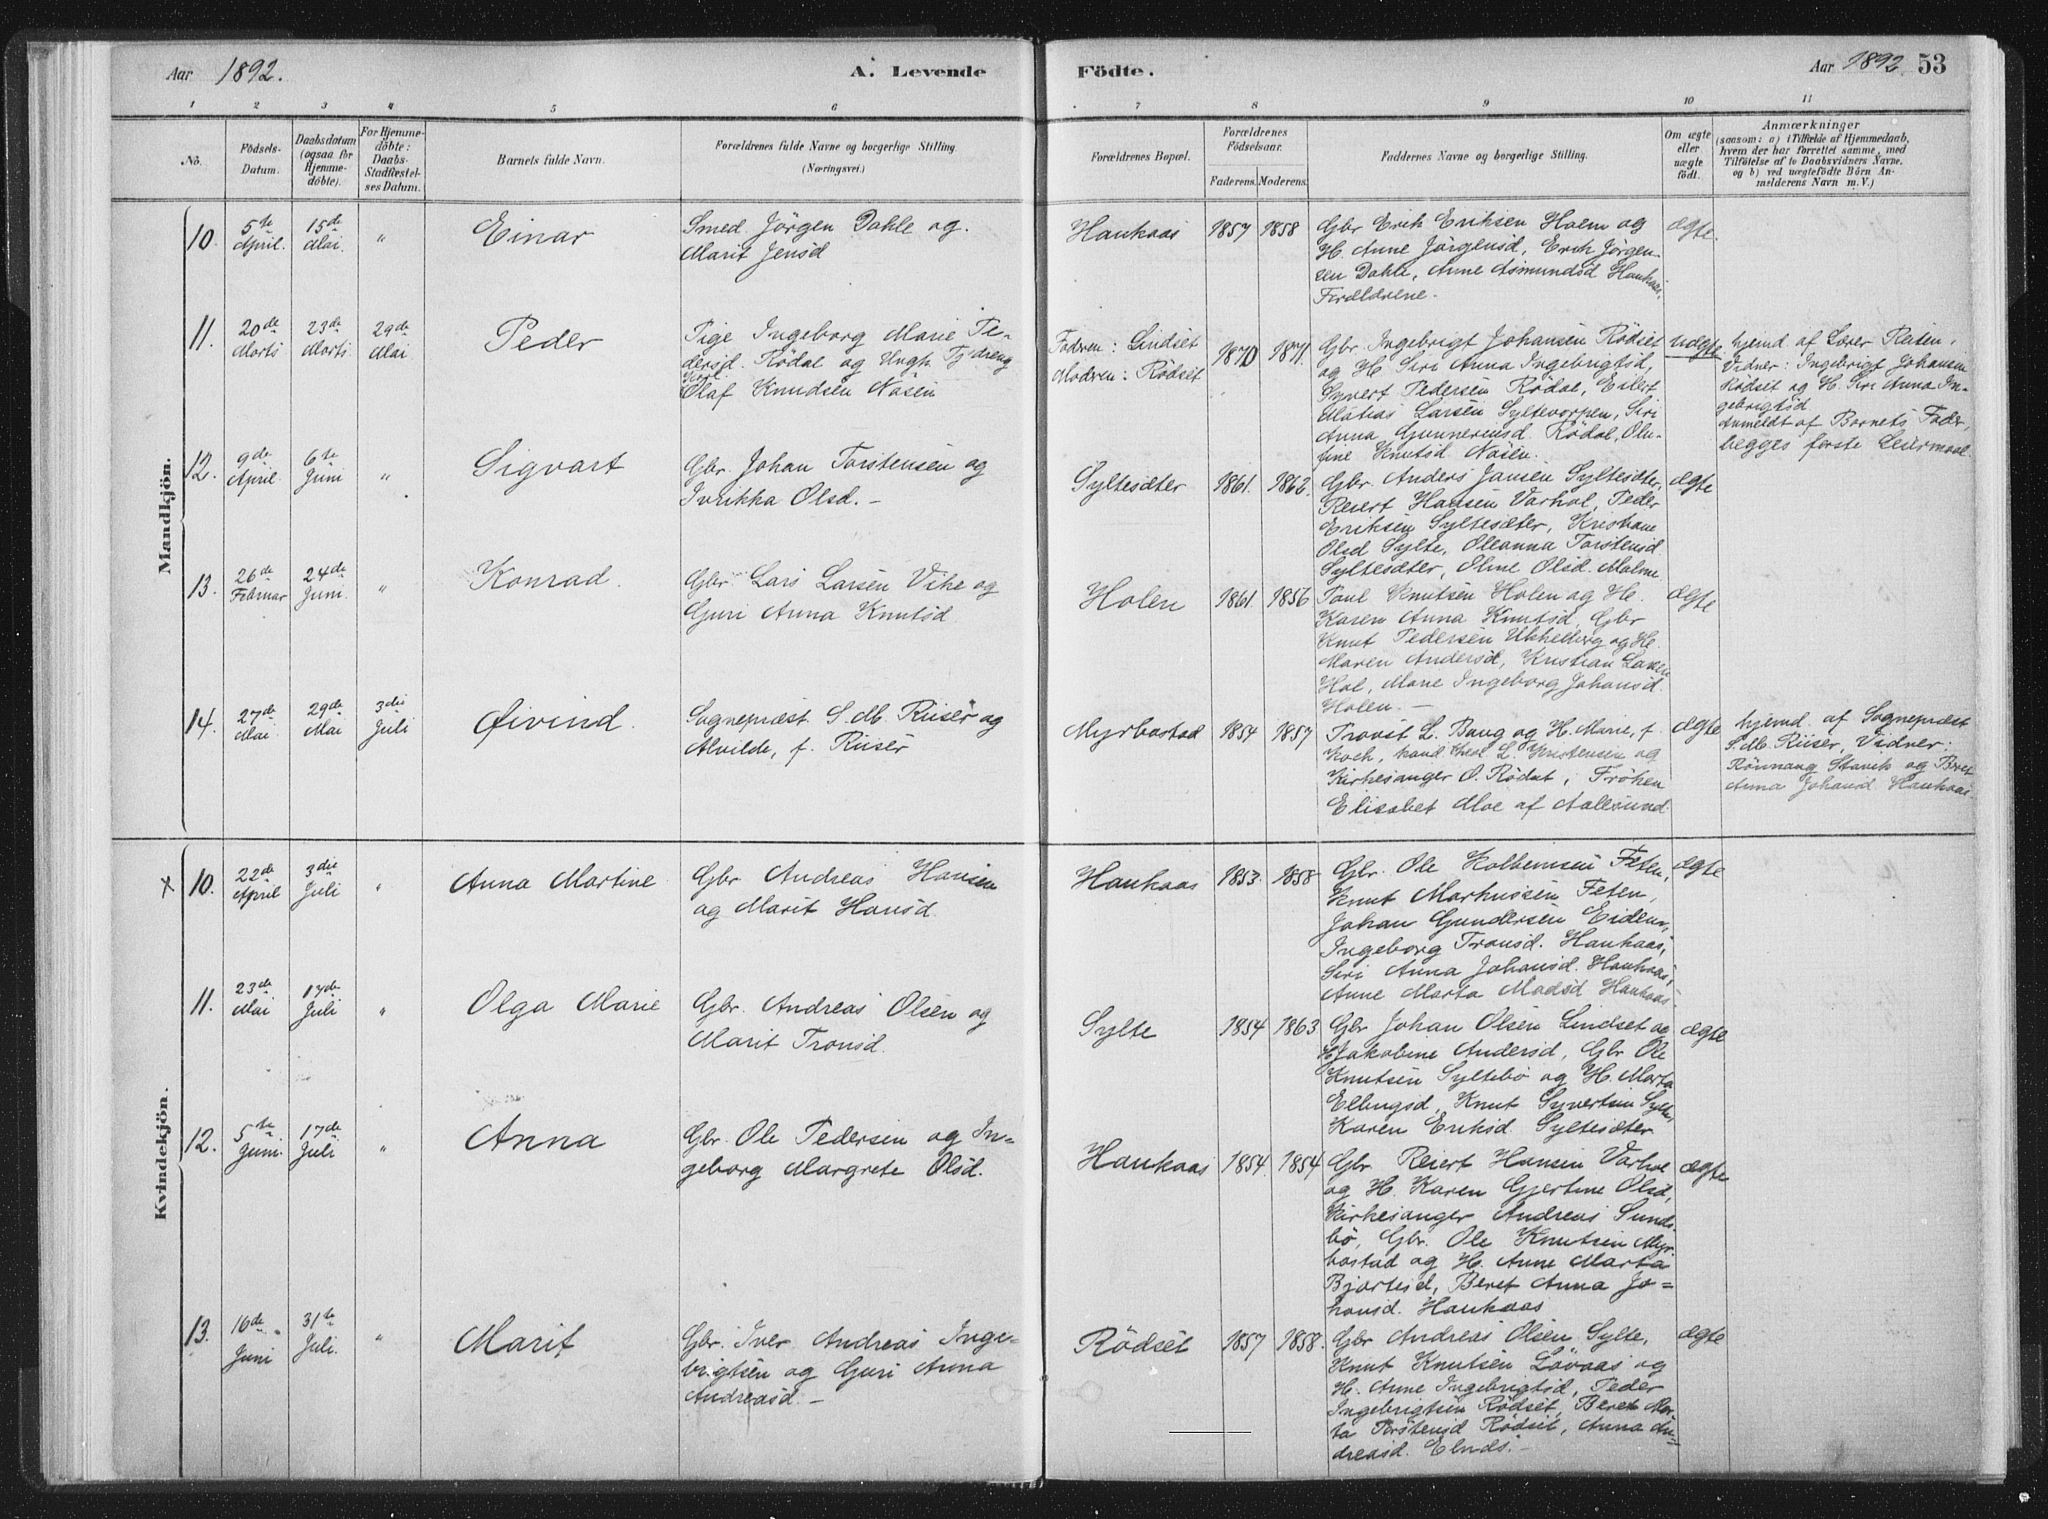 Aar 1892.
A. Levende
Födte.
Aar 1892. 53
1 2 3 4 5 6 7 8 9 10 11
No.
Födsels-
Datum.
Daabsdatum
(ogsaa for
Hjemme-
döbte).
For Hjemme-
döbte:
Daabs-
Stadfæstel-
ses Datum.
Barnets fulde Navn.
Forældrenes fulde Navne og borgerlige Stilling.
(Næringsvei.)
Forældrenes Bopæl.
Forældrenes
Födselsaar.
Faderens. Moderens.
Faddernes Navne og borgerlige Stilling.
Om ægte
eller
uægte
födt.
Anmærkninger
(saasom: a) i Tilfælde af Hjemmedaab,
hvem der har forrettet samme, med
Tilföielse af to Daabsvidners Navne,
og b) ved uægtefödte Börn An-
melderens Navn m. V.)
Mandkjön.
10. 5te April. 15de Mai. " Einar
Smed Jörgen Dahle og
Marit Jensd
Haukaas 1857 1858
Gbr Erik Eriksen Holm og
H. Anne Jörgensd, Erik Jörgen-
sen Dahle, Anne Asmundsd Haukaas,
Forældrene.
ægte.
11. 20de Marts 23de Marts 29de Mai Peder
Pige Ingeborg Marie Pe-
dersd. Rödal og Ungk. Tjdreng
Karl
Olaf Knudsen Nåsen
Fadren: Lindset
Modren: Rödset
1870 1871.
Gbr Ingebrigt Johansen Rödset
og H. Siri Anna Ingebrigtsd,
Syvert Pedersen Rödal, Eilert
Matias Larsen Syltevorpen, Siri
Anna Gunnerusd. Rödal, Olu-
fine Knutsd Nåsen.
uægte
hjemd. af Lærer Reiten,
Vidner: Ingebrigt Johansen
Rödset og H. Siri Anna In-
gebrigtsd
Anmeldt af Barnets Fader,
begges förste Leiermaal.
12. 9de April. 6te Juni " Sigvart
Gbr. Johan Torstensen og
Ivrikka Olsd. -
Syltesæter 1861. 1862.
Gbr. Anders Jansen Syltesæter,
Reiert Hansen Varhol, Peder
Eriksen Syltesæter, Kristiane
Olsd Sylte, Oleanna Torstensd
Syltesæter, Oline Olsd. Malme
ægte
13. 26de Februar 24de Juni. " Konrad.
Gbr Lars Larsen Vike og
Guri Anna Knutsd
Holen 1861. 1856
Paul Knutsen Holen og H.
Karen Anna Knutsd, Gbr
Knut Pedersen Ukkelberg og H.
Maren Andersd, Kristian Larsen
Hol, Marie Ingeborg Johansd
Holen. -
ægte
14. 27de Mai 29de Mai 3die Juli Øivind.
Sognepræst S. M. Riisèr og
Alvilde, f. Riisèr
Myrbostad 1854 1857
Provst L. Bang og H. Marie, f.
Koch, kand. theol. L. Kristensen og
Kirkesanger O. Rödal, Fröken
Elisabet Moe af Aalesund
ægte
hjemd. af Sognepræst
S. M. Riiser, Vidner:
Rönnaug Stavik og Beret
Anna Johansd. Haukaas.
Kvindekjön.
x 10. 22de April 3die Juli " Anna Martine
Gbr Andreas Hansen
og Marit Hansd.
Haukaas 1853. 1858
Gbr. Ole Kolbensen Feten,
Knut Markussen Feten,
Johan Gundersen Eidem,
Ingeborg Tronsd. Haukaas,
Siri Anna Johansd. Haukaas,
Anne Marta Madsd Haukaas
ægte
11. 23de Mai 17de Juli " Olga Marie
Gbr. Andreas Olsen og
Marit Tronsd.
Sylte 1854 1863
Gbr Johan Olsen Lindset og
H. Jakobine Andersd, Gbr Ole
Knutsen Syltebö og H. Marta
Ellingsd, Knut Syvertsen Sylte,
Karen Eriksd. Syltesæter
ægte
12. 5te Juni. 17de Juli " Anna
Gbr. Ole Pedersen og In-
geborg Margrete Olsd.
Haukaas 1854. 1854
Gbr. Reiert Hansen Varhol
og H. Karen Gjertine Olsd,
Kirkesanger Andreas Sunds-
bö, Gbr. Ole Knutsen Myr-
bostad og H. Anne Marta
Bjartesd, Beret Anna Jo-
hansd. Haukaas
ægte
13. 16de Juni 31te Juli. " Marit
Gbr. Iver Andreas Inge-
brigtsen og Guri Anna
Andreasd. -
Rödset 1857 1858.
Gbr Andreas Olsen Sylte,
Knut Knutsen Lövaas og
H. Anne Ingebrigtsd, Peder
Ingebrigtsen Rödset, Beret Mar-
ta Torstensd Rödset, Anna An-
dreasd. Elnæs. -
ægte